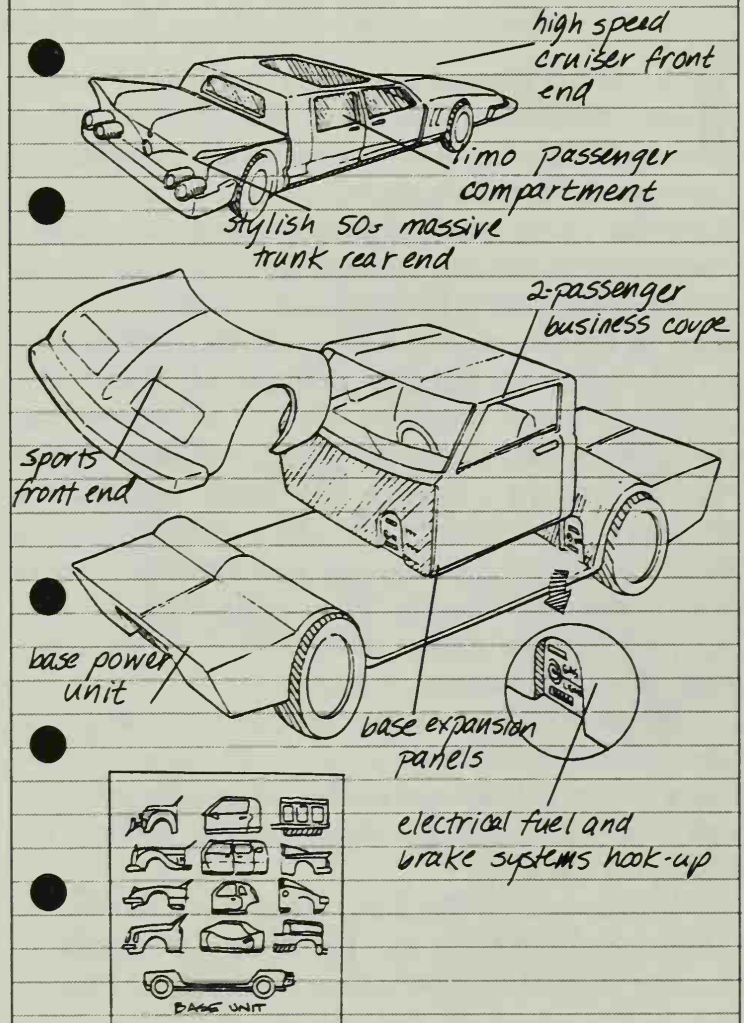 high speed
cruiser front
end
limo passenger
compartment
stylish 50s massive
trunk rear end
2-passenger
business coupe
sports
front end
base power
unit
base expansion
panels
electrical fuel and
brake systems hook-up
BASE UNIT